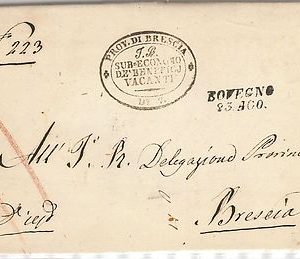 223
PROV. DI BRESCIA
I. R.
SUB-ECONOMO
DE' BENEFICJ
VACANTI
DI
BOVEGNO
23. AGO.
All' I. R. Delegazione Provin
Brescia